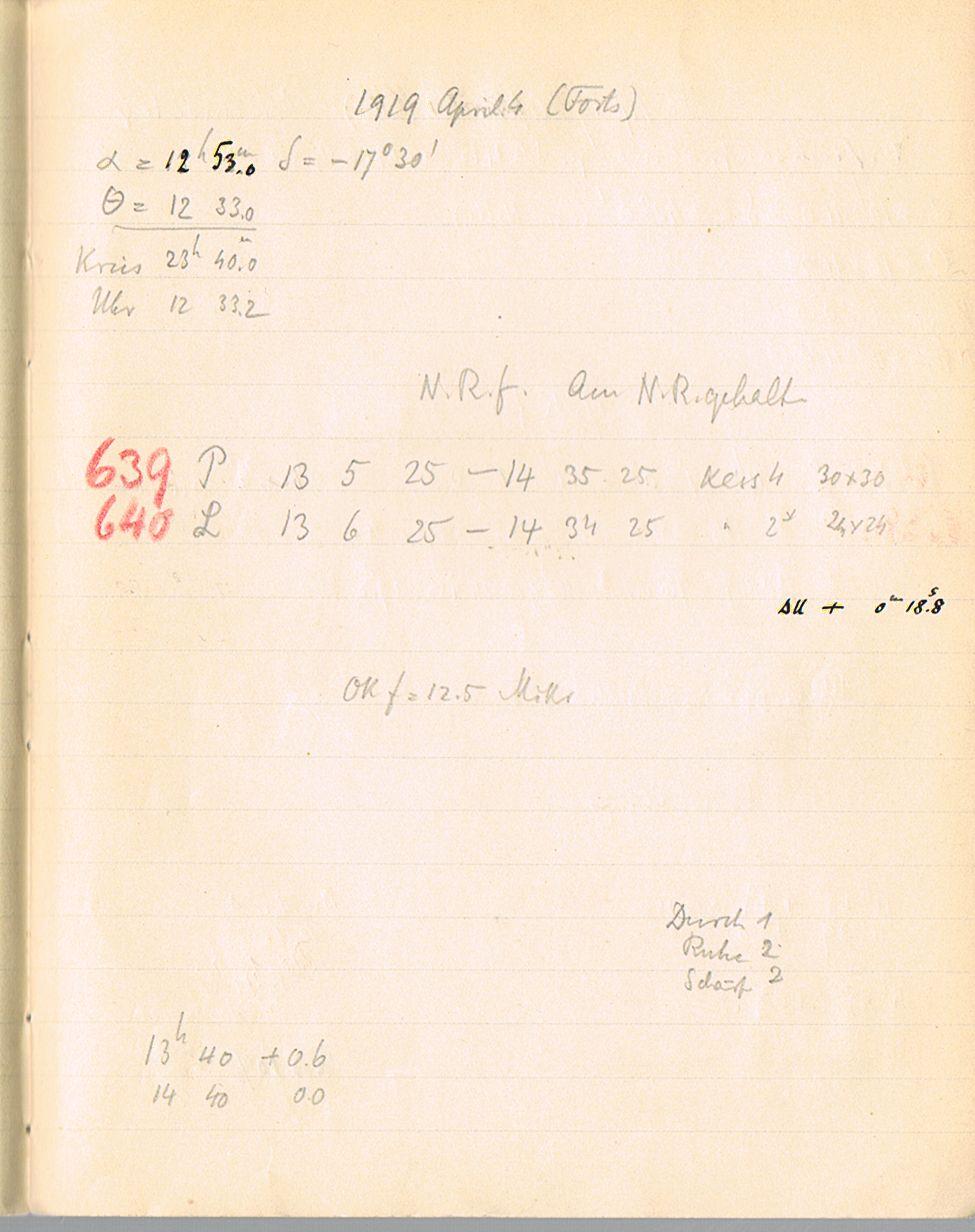 1919 April 4 (Forts)
α = 12ʰ 53ᵐ.0 δ = -17° 30'
θ = 12 33.0
Kreis 23ʰ 40ᵐ.0
Uhr 12 33.2
N.R.f. Am N.R. gehalt
639 P 13 5 25 - 14 35 25 30x30
640 L 13 6 25 - 14 34 25 " 2ˣ 24x24
ΔU + 0ᵐ 18ˢ.8
OK f = 12.5 Mikr
Durch 1
Ruhe 2
Schärf 2
13ʰ 40 +0.6
14 40 0.0